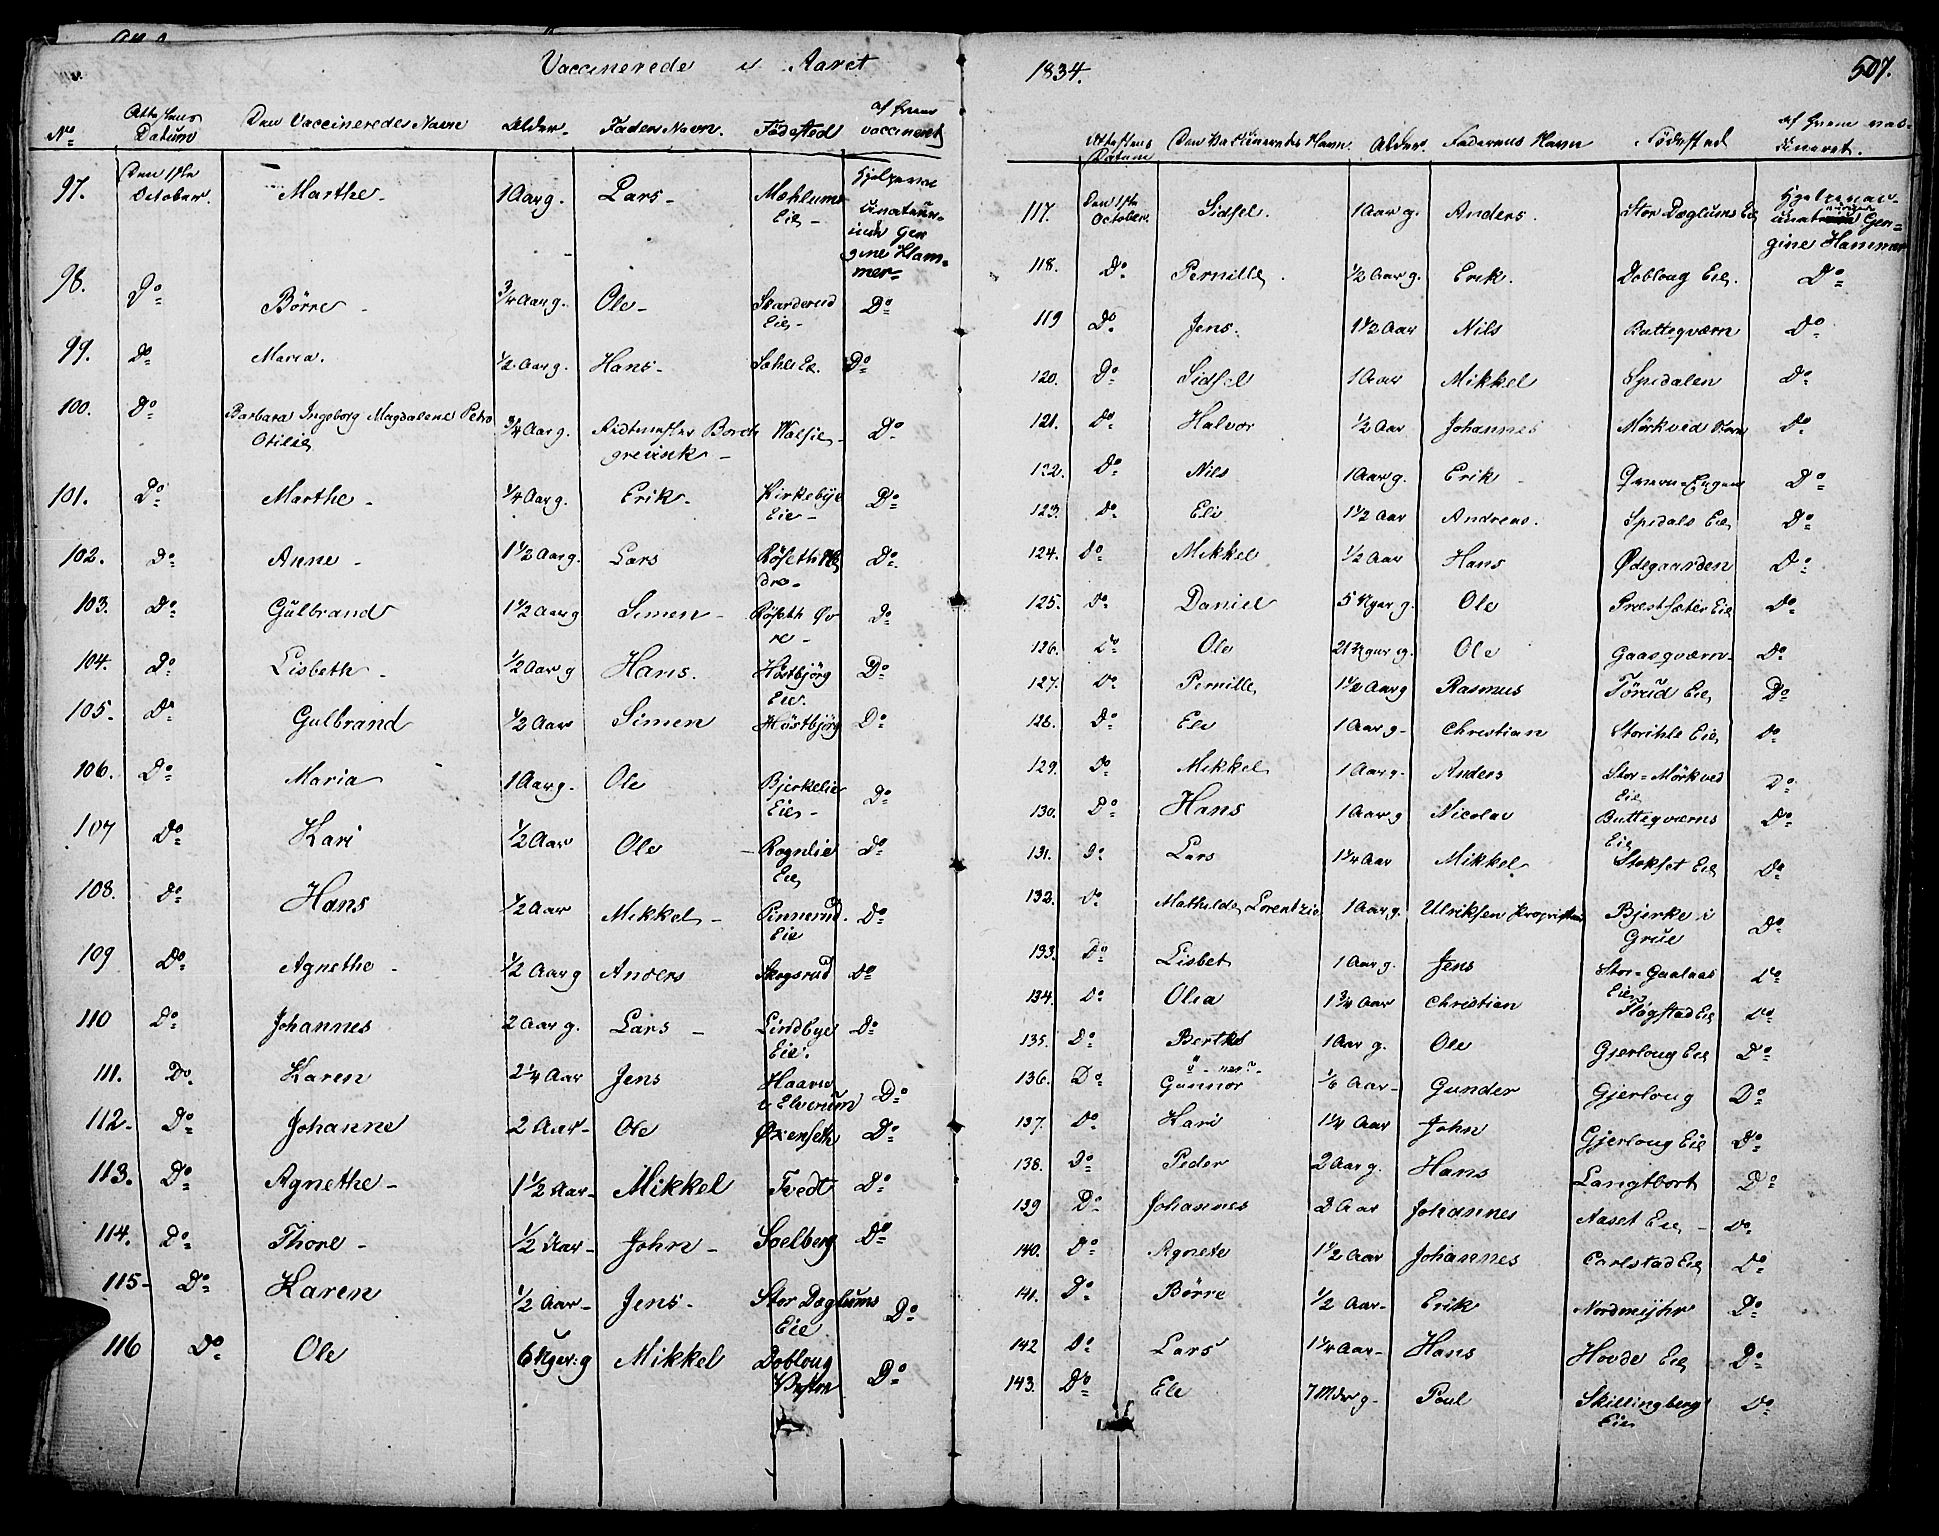 Vaccinerede i Aaret
No Attestens Datum Den Vaccineredes Navn Alder Faders Navn. Födested af hvem vaccineret
97. Den 1ste October. Marthe 1 Aar g. Lars Mæhlums Eie Hjelpevac
98. Do Börre ¾ Aar g. Ole Skarderud Eie Do
99. Do Maria. ½ Aar g. Hans Do
100. Do Barbara Ingeborg Magdalene Petra Otilie ¾ Aar g. Ridtmester Borch grevink Do
101. Do Marthe ¼ Aar g. Erik Kirkebye Eie Do
102. Do Anne 1½ Aar g. Lars Röseth Do
103. Do Gulbrand 1½ Aar g Simen Röseth Øv re Do
104. Do Lisbeth ½ Aar g Hans. Höstbjörg Eie. Do
105. Do Gulbrand ½ Aar Simen Höstbjörg Do
106. Do Maria 1 Aar g. Ole Bjerkelie Eie Do
107 Do Kari ½ Aar Ole Rognlie Eie Do
108. Do Hans ½ Aar Mikkel Pinnerud Eie Do
109 Do Agnethe ½ Aar g Anders Skogsrud Do
110 Do Johannes 2 Aar g. Lars Lindbye Eie. Do
111. Do Karen 2¼ Aar Jens i Elverum Do
112. Do Johanne 2 Aar Ole Øxenseth Do
113. Do Agnethe 1½ Aar Mikkel Tvedt Do
114. Do Thore ½ Aar John Soelberg Do
115 Do Karen ½ Aar Jens Stor Dæglums Eie Do
116 Do Ole 6 Uger g Mikkel Dobloug Vestre Do
1834. 507.
Attestens Datum Den Vaccineredes Navn Alder. Faderens Navn Födested af hvem vaccineret.
117. Den 1ste October. Sidsel. 1 Aar g. Anders. Stor Dæglums Eie Gergine Hammer
118. Do Pernille ½ Aar g. Erik. Dobloug Eie. Do
119 Do Jens. 1½ Aar Nils Butteqværn Do
120. Do Sidsel 1 Aar Mikkel Spidalen Do
121. Do Halvor ½ Aar Johannes Mörkved Do
122. Do Nils 1 Aar g. Erik Do
123. Do Eli 1½ Aar Andreas. Spidals Eie Do
124. Do Mikkel ½ Aar Hans Ødegaarden Do
125. Do Daniel 5 Uger g. Ole Præstsæter Eie Do
126. Do Ole Uger g. Ole Gaasqværn Do
127. Do Pernille 1½ Aar g Rasmus Törud Eie Do
128. Do Eli 1 Aar g Christian Storihle Eie Do
129. Do Mikkel 1 Aar g. Anders Stor=Mörkved Eie Do
130. Do Hans 1 Aar g Nicolai Butteqværns Eie Do
131. Do Lars 1¼ Aar Mikkel. Stokset Eie Do
132. Do Mathilde Lorentzie 1 Aar g. Ulriksen Bjerke i Grue Do
133. Do Lisbet 1 Aar g. Jens Stor=Gaalaas Eie Do
134. Do Olia 1¾ Aar Christian Fløgstad Eie Do
135. Do Berthe 1 Aar g. Ole Gjerloug Eie Do
136. Do Gunnor Aar Gunder Gjerloug Do
137. Do Kari 1¼ Aar John Gjerloug Eie Do
138. Do Peder 2 Aar g. Hans Langtbort Do
139 Do Johannes 3 Aar Johannes Aaset Eie Do
140. Do Agnete 1½ Aar Johannes Carlstad Eie Do
141. Do Börre ½ Aar Erik Nordmyhr Do
142 Do Lars 1¼ Aar Hans Hovde Eie Do
143. Do Ele 7 Mdr g. Poul Skillingberg Eie Do